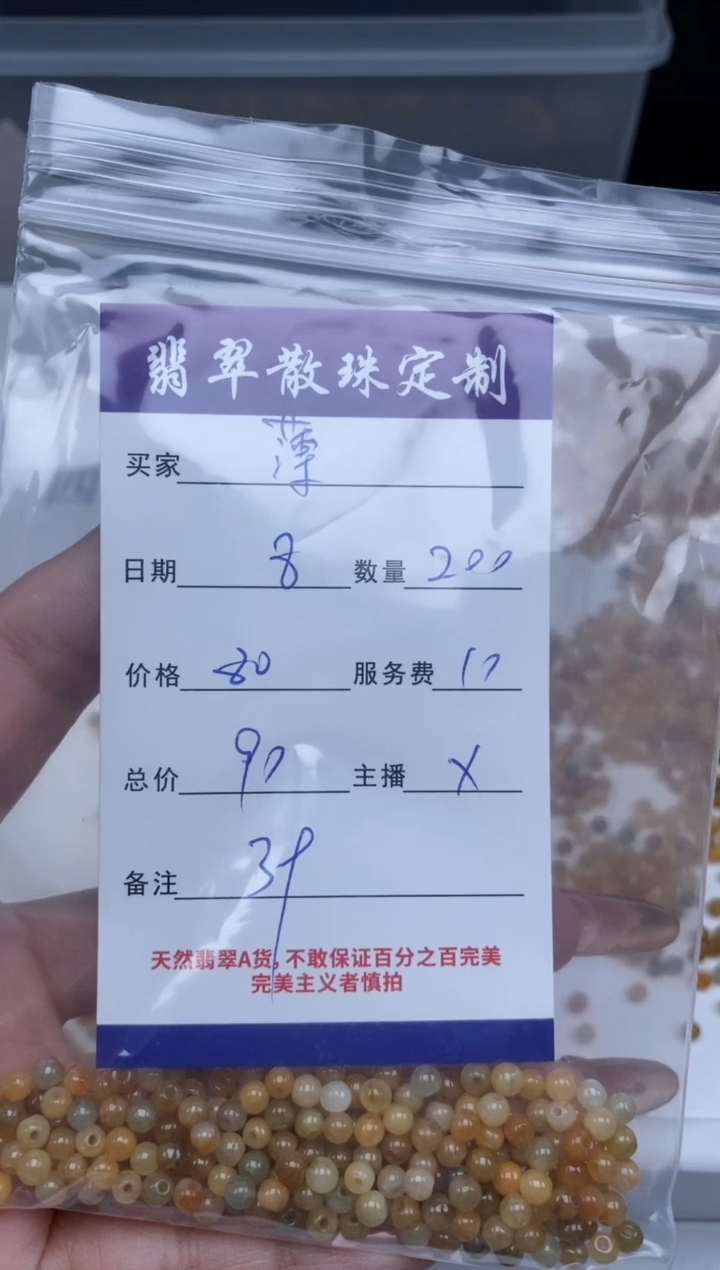 翡翠散珠定制
买家 薄
日期 8 数量 200
价格 80 服务费 10
总价 90 主播 X
备注 39
天然翡翠A货,不敢保证百分之百完美
完美主义者慎拍